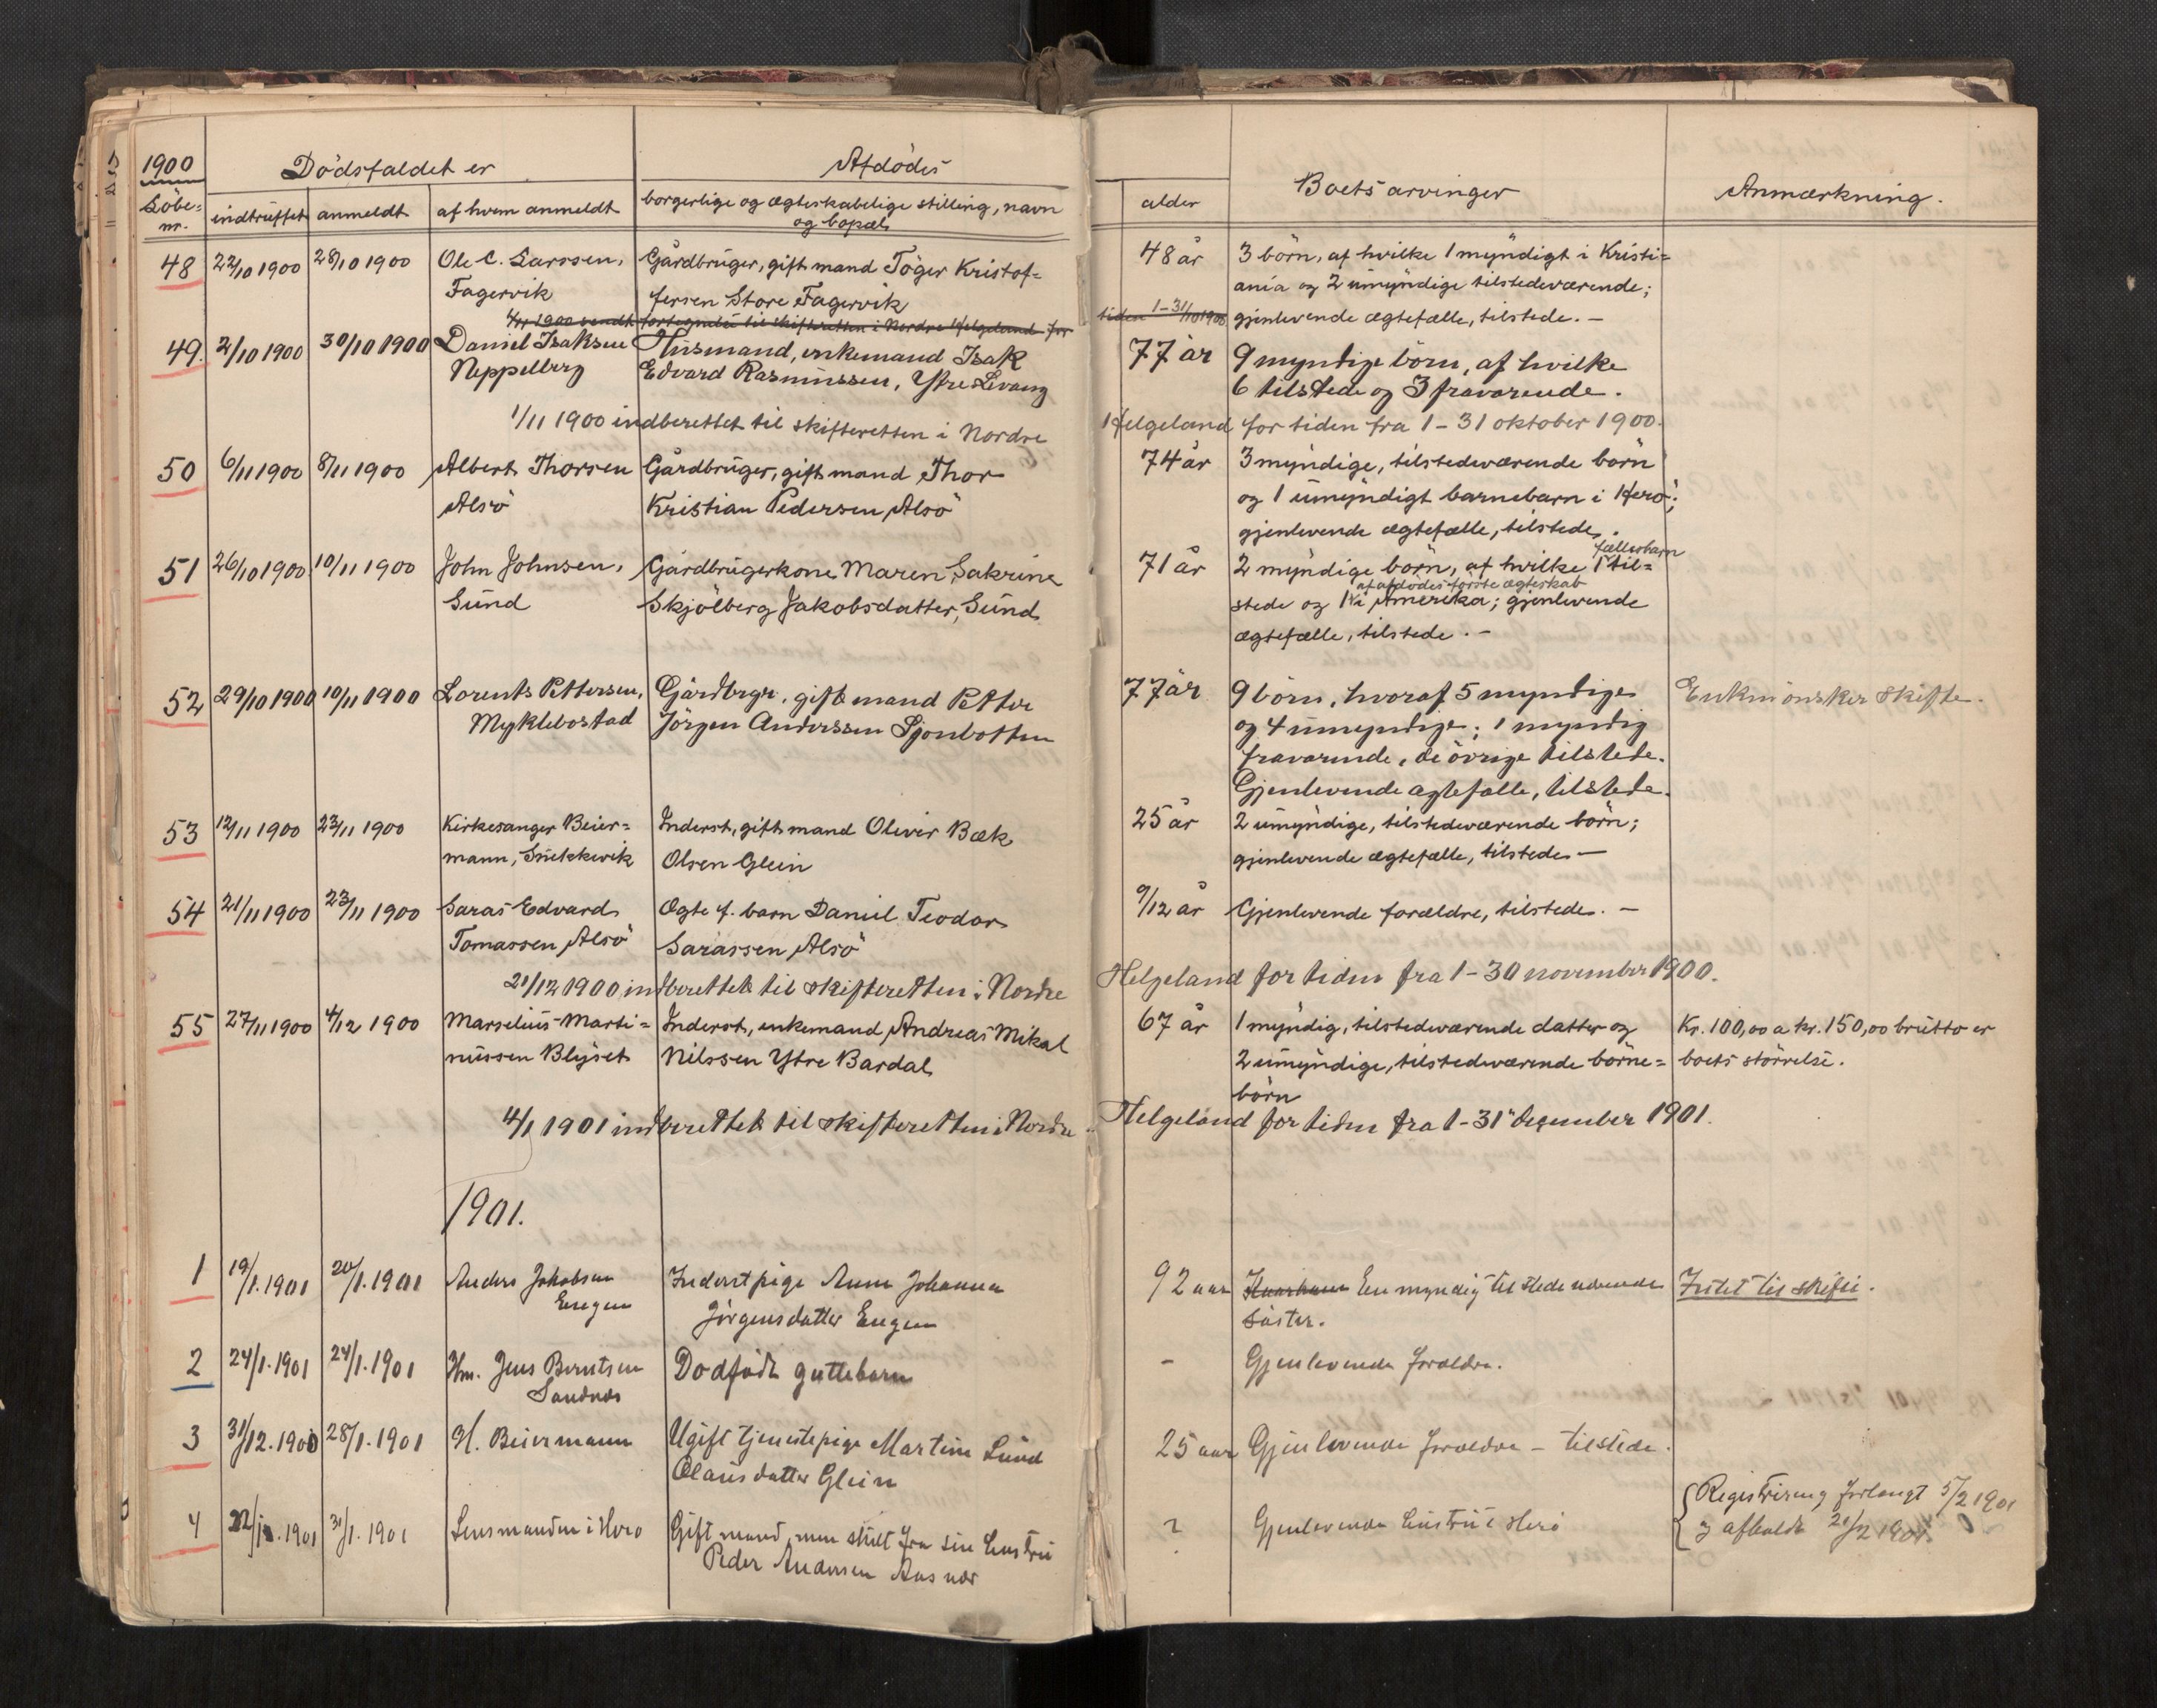 1900
Dödsfaldet er
Afdödes
Löbe-
nr.
indtruffet
anmeldt
af hvem anmeldt
borgerlige og ægteskabelige stilling, navn
og bopæl
alder
Boets arvinger
Anmærkning.
48 22/10 1900 28/10 1900 Ole C. Larssen, Gårdbruger, gift mand Töger Kristof- 48 år 3 börn, af hvilke 1 myndigt i Kristi-
Fagervik fersen Store Fagervik ania og 2 umyndige tilstedeværende;
4/11 1900 sendt fortegnelse til skifteretten i Nordre Helgeland for tiden 1-31/10 1900 gjenlevende ægtefælle, tilstede. -
49. 2/10 1900 30/10 1900 Daniel Isaksen Husmand, enkemand Isak 77 år 9 myndige börn, af hvilke
Neppelberg Edvard Rasmussen, Ytre Levang 6 tilstede og 3 fraværende.
1/11 1900 indberettet til skifteretten i Nordre Helgeland for tiden fra 1-31 oktober 1900.
50 6/11 1900 8/11 1900 Albert Thorsen Gårdbruger, gift mand Thor 74 år 3 myndige, tilstedeværende börn
Alsö Kristian Pedersen Alsö og 1 umyndigt barnebarn i Herö;
gjenlevende ægtefælle, tilstede.
51 26/10 1900 10/11 1900 John Johnsen, Gårdbrugerkone Maren Sakrine 71 år 2 myndige börn, af hvilke 1 fællesbarn til-
Sund Skjölberg Jakobsdatter, Sund stede og 1 af afdödes förste ægteskab i Amerika; gjenlevende
ægtefælle, tilstede. -
52 29/10 1900 10/11 1900 Lorents Pettersen, Gårdbrgr, gift mand Petter 77 år 9 börn, hvoraf 5 myndige Enken önsker skifte.
Myklebostad Jörgen Anderssen Sjonbotten og 4 umyndige; 1 myndig
fraværende, de övrige tilstede.
Gjenlevende ægtefælle, tilstede.
53 12/11 1900 23/11 1900 Kirkesanger Beier- Inderst, gift mand Oliver Bæk 25 år 2 umyndige, tilstedeværende börn;
mann, Snekkevik Olsen Glein gjenlevende ægtefælle, tilstede -
54 21/11 1900 23/11 1900 Saras Edvard Ægte f. barn Daniel Teodor 9/12 år Gjenlevende forældre, tilstede. -
Tomassen Alsö Sarassen Alsö
21/12 1900 indberettet til skifteretten i Nordre Helgeland for tiden fra 1-30 november 1900.
55 27/11 1900 4/12 1900 Marselius Marti- Inderst, enkemand Andreas Mikal 67 år 1 myndig, tilstedeværende datter og Kr. 100,00 a kr. 150,00 brutto er
nussen Blyset Nilssen Ytre Bardal 2 umyndige, tilstedeværende börne- boets störrelse.
börn
4/1 1901 indberettet til skifteretten i Nordre Helgeland for tiden fra 1-31 december 1901.
1901.
1 19/1. 1901 20/1. 1901 Anders Jakobsen Inderst pige Anne Johanna 92 aar En myndig tilstedeværende Intet til skifte.
Engen Jörgensdatter Engen söster.
2 24/1. 1901 24/1. 1901 Hm. Jens Berntsen Dodfödt guttebarn - Gjenlevende forældre.
Sandnes
3 31/12. 1900 28/1. 1901 H. Beiermann Ugift tjenestepige Martine Lund 25 aar Gjenlevende forældre - tilstede.
Olausdatter Glein
4 22/1. 1901 31/1. 1901 Lensmanden i Herö Gift mand, men skilt fra sin hustru ? Gjenlevende hustru i Herö Registrering forlangt 5/2 1901
Peder Andersen Aasvær og afholdt 21/2 1901.